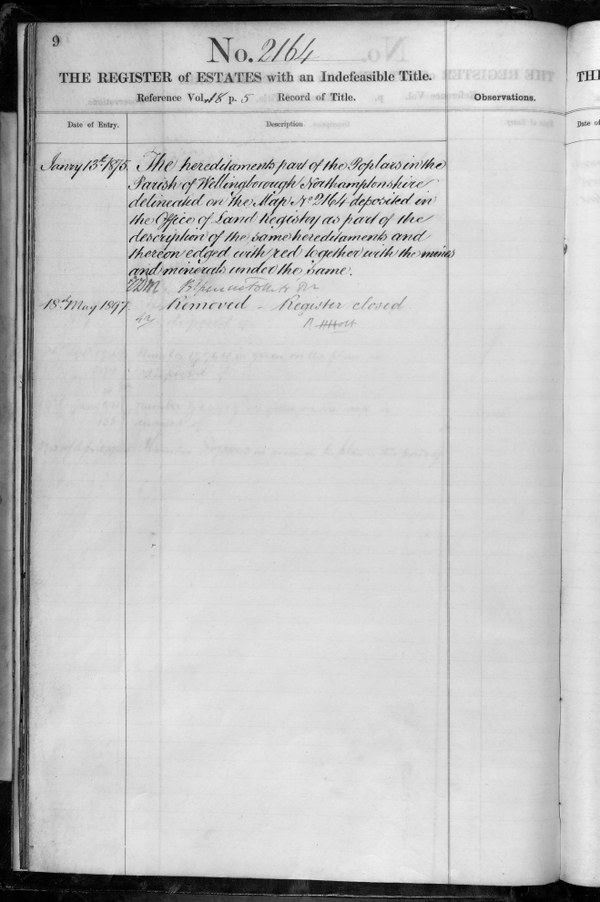 9
No. 2164
THE REGISTER of ESTATES with an Indefeasible Title.
Reference Vol. 18 p. 5 Record of Title.
Observations.
Date of Entry.
Description.
Janry 13th 1875.
The hereditaments part of the Poplars in the
Parish of Wellingborough Northamptonshire
delineated on the Map No 2164 deposited in
the Office of Land Registry as part of the
description of the same hereditaments and
thereon edged with red together with the mines
and minerals under the same.
18th May 1897.
Removed - Register closed
THE
Date of